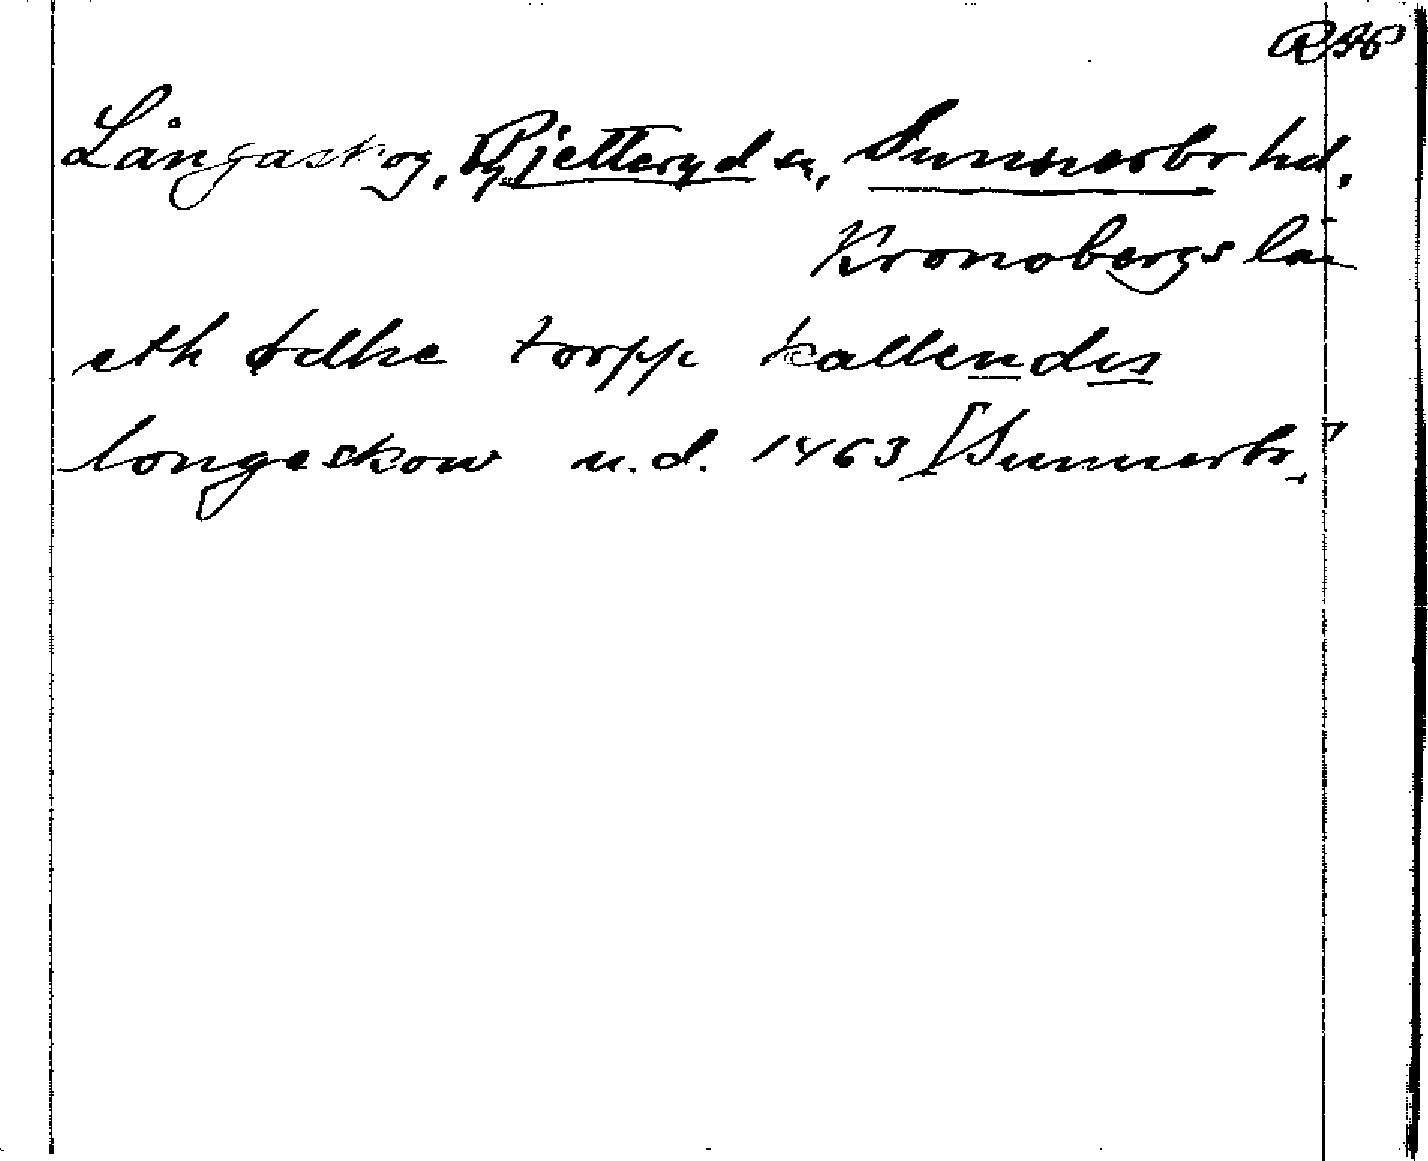 RAP
Långaskog, Pjetteryd sn, Sunnerbo hd,
Kronobergs län
eth ödhe torpp kallendes
longeskow u.d. 1463 [Sunnerb.]